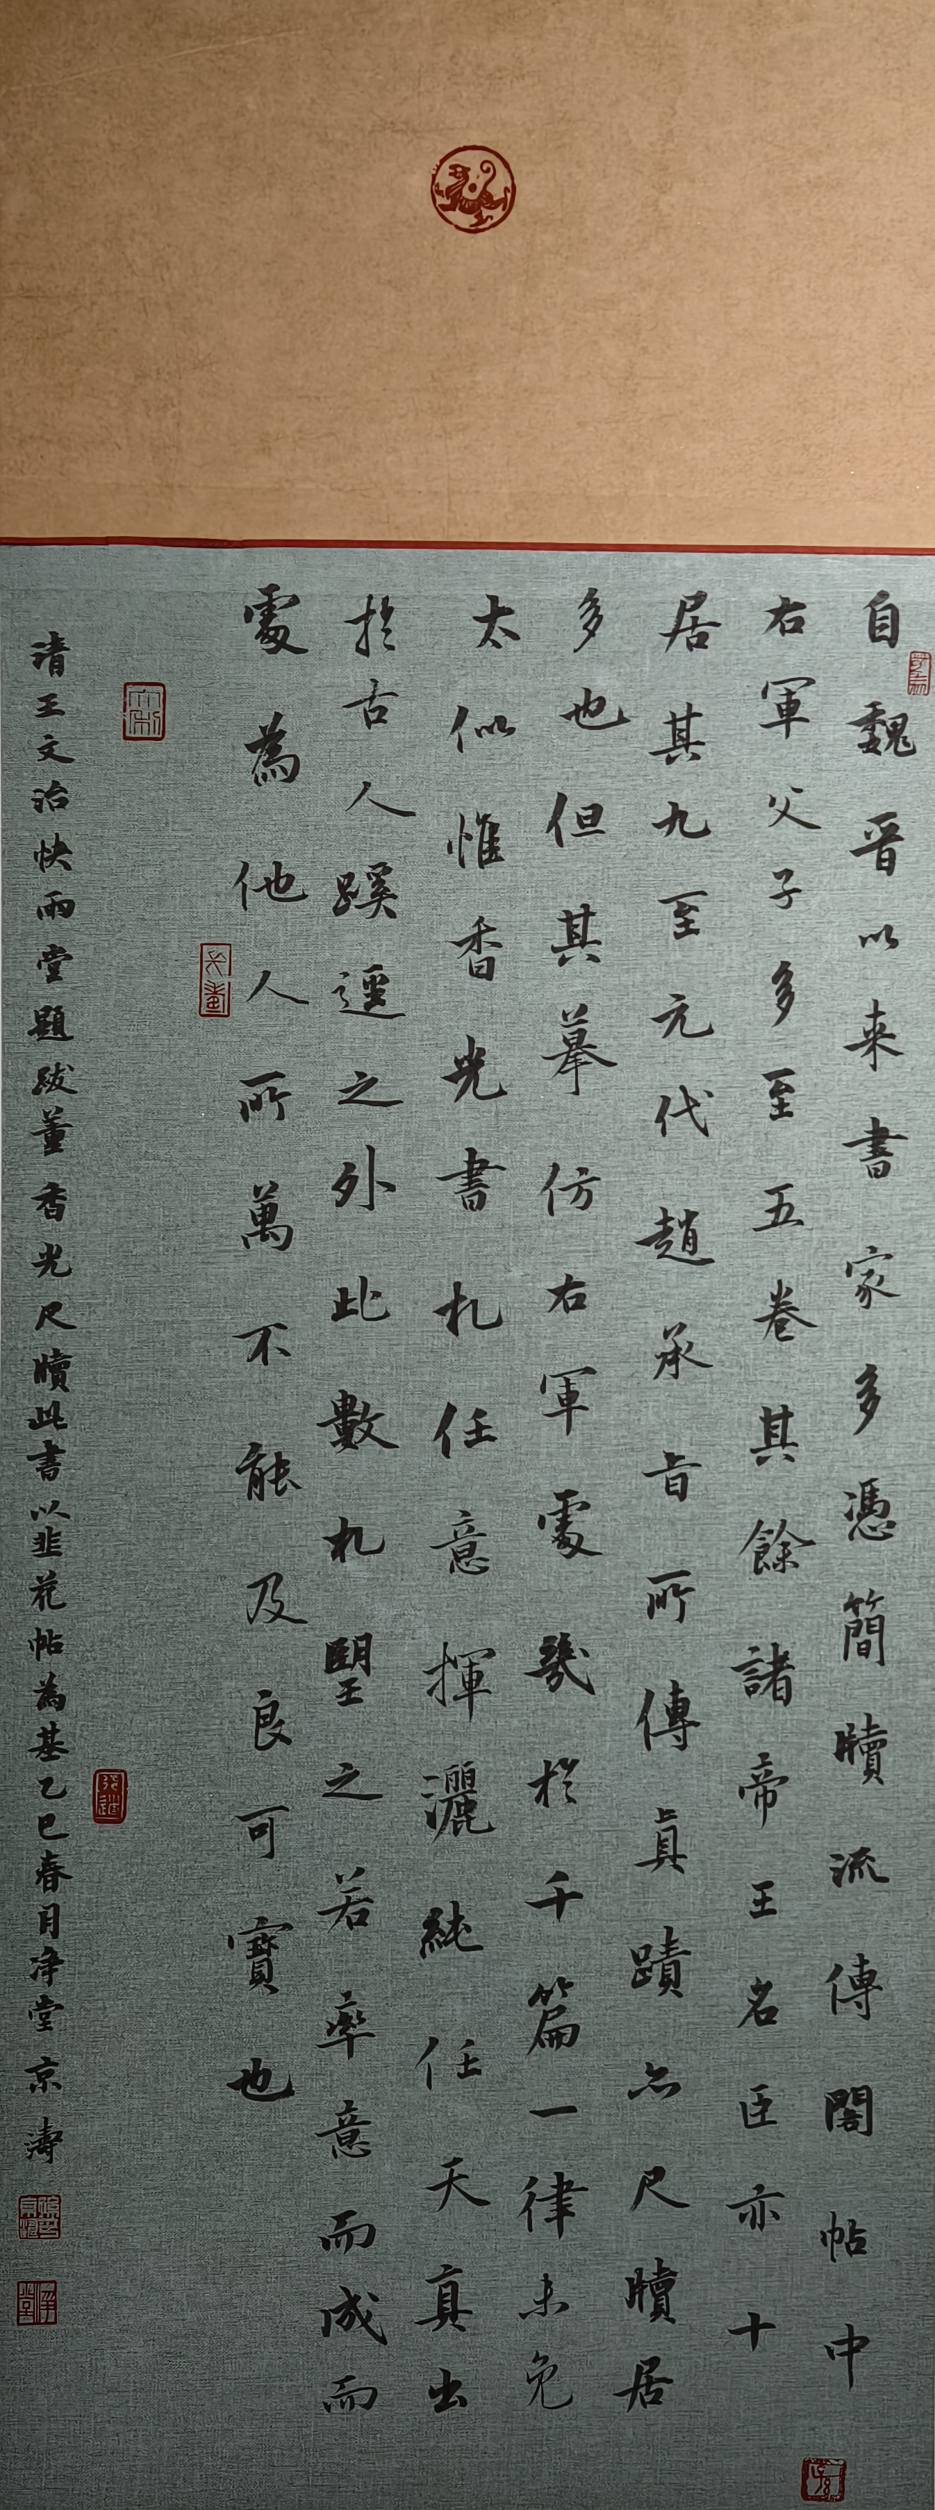 自魏晉以来書家多憑簡牘流傳閣帖中
右軍父子多至五卷其餘諸帝王名臣亦十
居其九至元代趙承旨所傳真蹟亦尺牘居
多也但其摹仿右軍處幾於千篇一律未免
太似惟香光書札任意揮灑純任天真出
於古人蹊逕之外此數札朢之若率意而成而
處為他人所萬不能及良可寶也
清王文治快雨堂題跋董香光尺牘此書以韭花帖為基乙巳春月净堂京濤